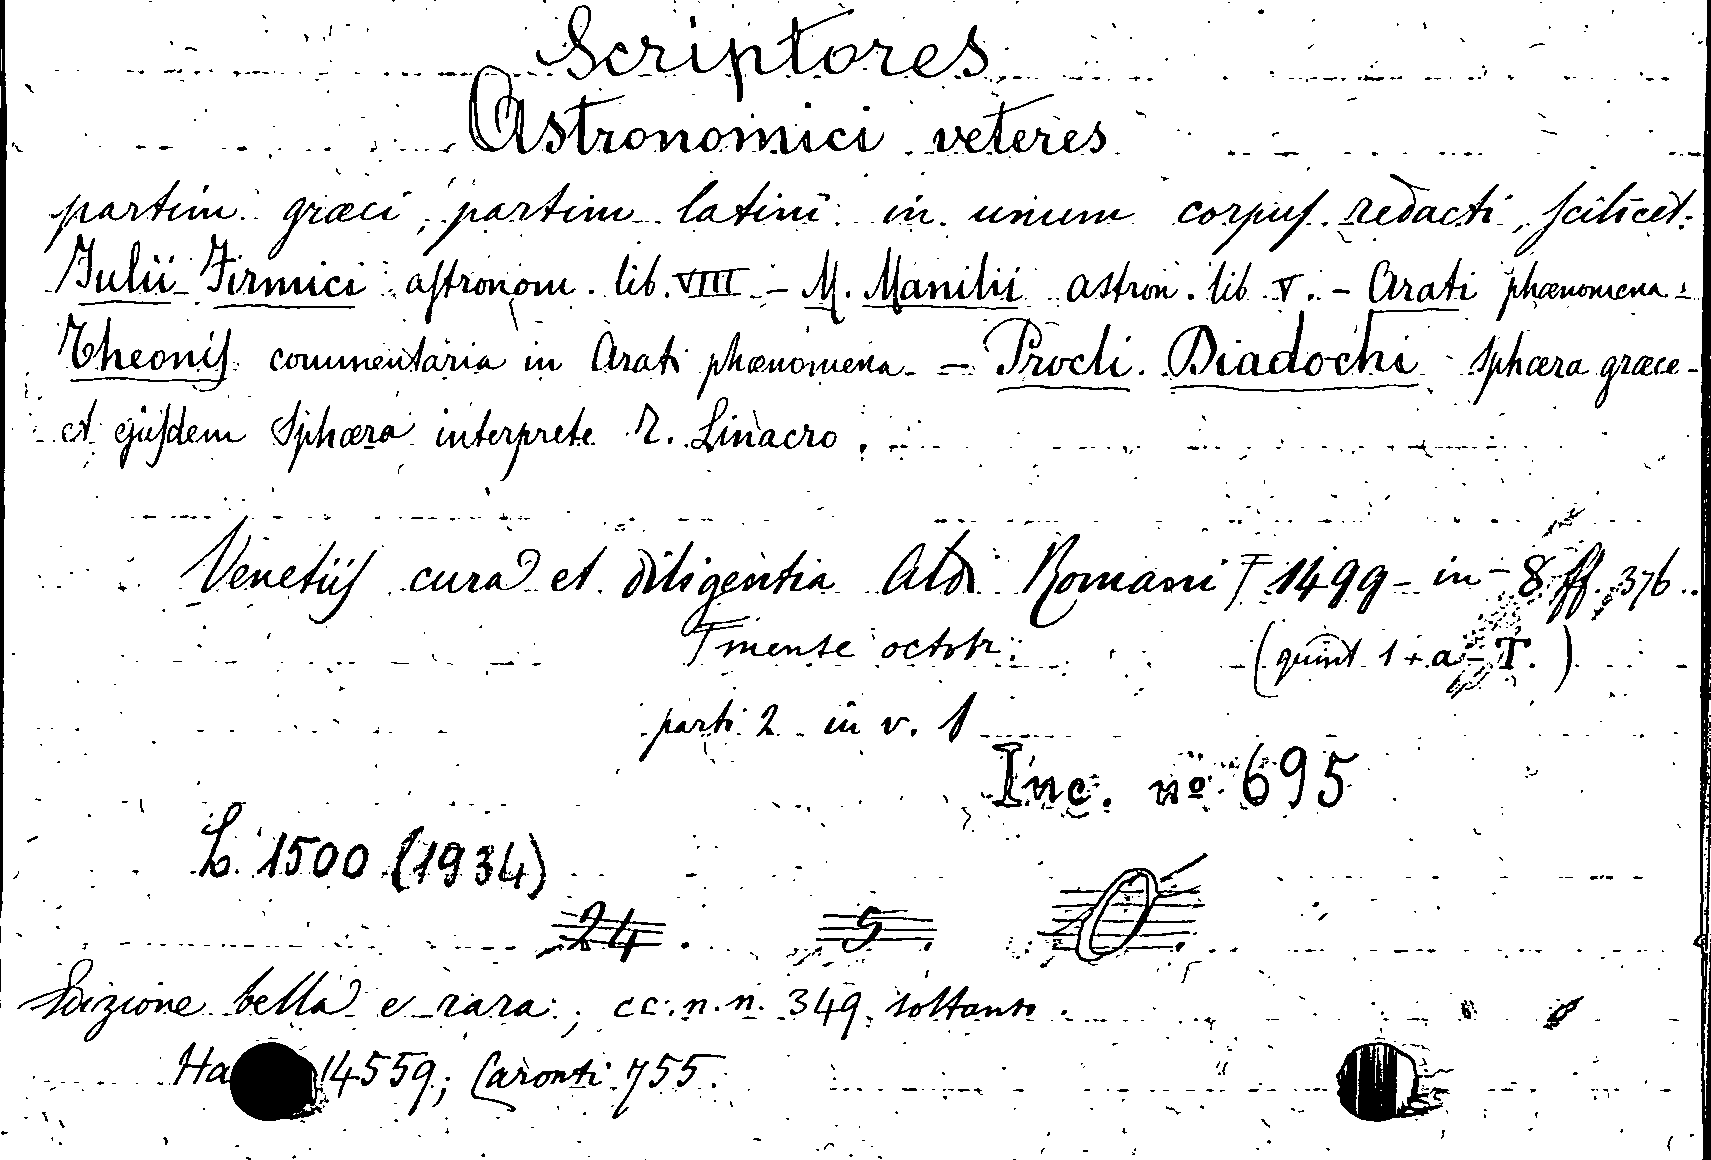 Scriptores
Astronomici veteres
partim græci, partim latini in unum corpus redacti, scilicet.
Julii Firmici astronom. lib. VIII - M. Manilii astron. lib V. - Arati phænomena -
Theonis commentaria in Arati phænomena - Procli. Diadochi Sphæra græce -
et ejusdem Sphæra interprete T. Linacro.
Venetiis cura et diligentia Aldi Romani 1499 - in - 8 ff. 376.
mense octobr. (quint 1 + a - T.)
parti 2 in v. 1
Inc. nº 695
L. 1500 (1934)
24. 5. 0.
Edizione bella e rara; cc. n. n. 349 soltanto.
Ha 14559; Caronti 755.